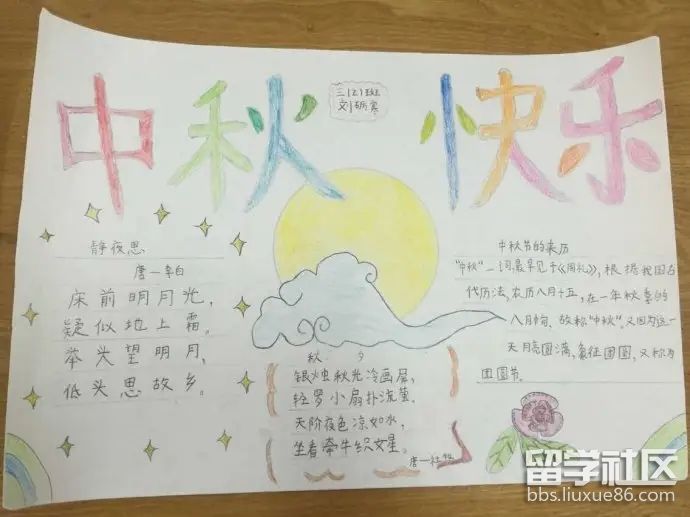 中秋快乐
三(2)班
静夜思
唐—李白
床前明月光,
疑似地上霜。
举头望明月,
低头思故乡。
秋夕
银烛秋光冷画屏,
轻罗小扇扑流萤。
天阶夜色凉如水,
坐看牵牛织女星。
唐—杜牧
中秋节的来历
"中秋"一词,最早见于《周礼》,根据我国古
代历法,农历八月十五,在一年秋季的
八月中旬,故称"中秋"。又因为这一
天月亮圆满,象征团圆,又称为
团圆节。
留学社区
bbs.liuxue86.com